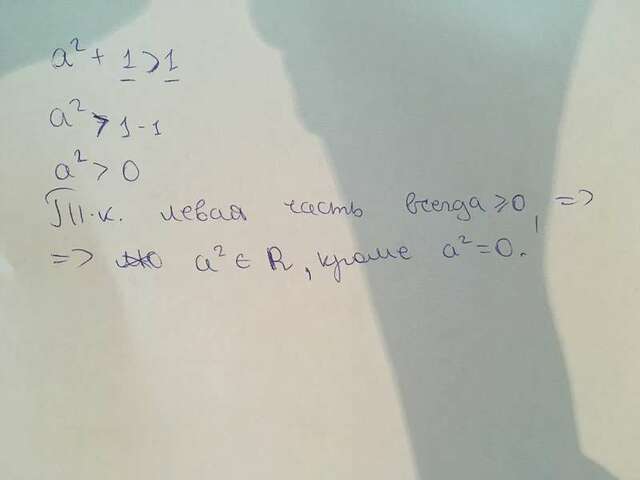 a² + 1 > 1
a² > 1 - 1
a² > 0
Т.к. левая часть всегда ≥ 0, =>
=> a² ∈ R, кроме a² = 0.